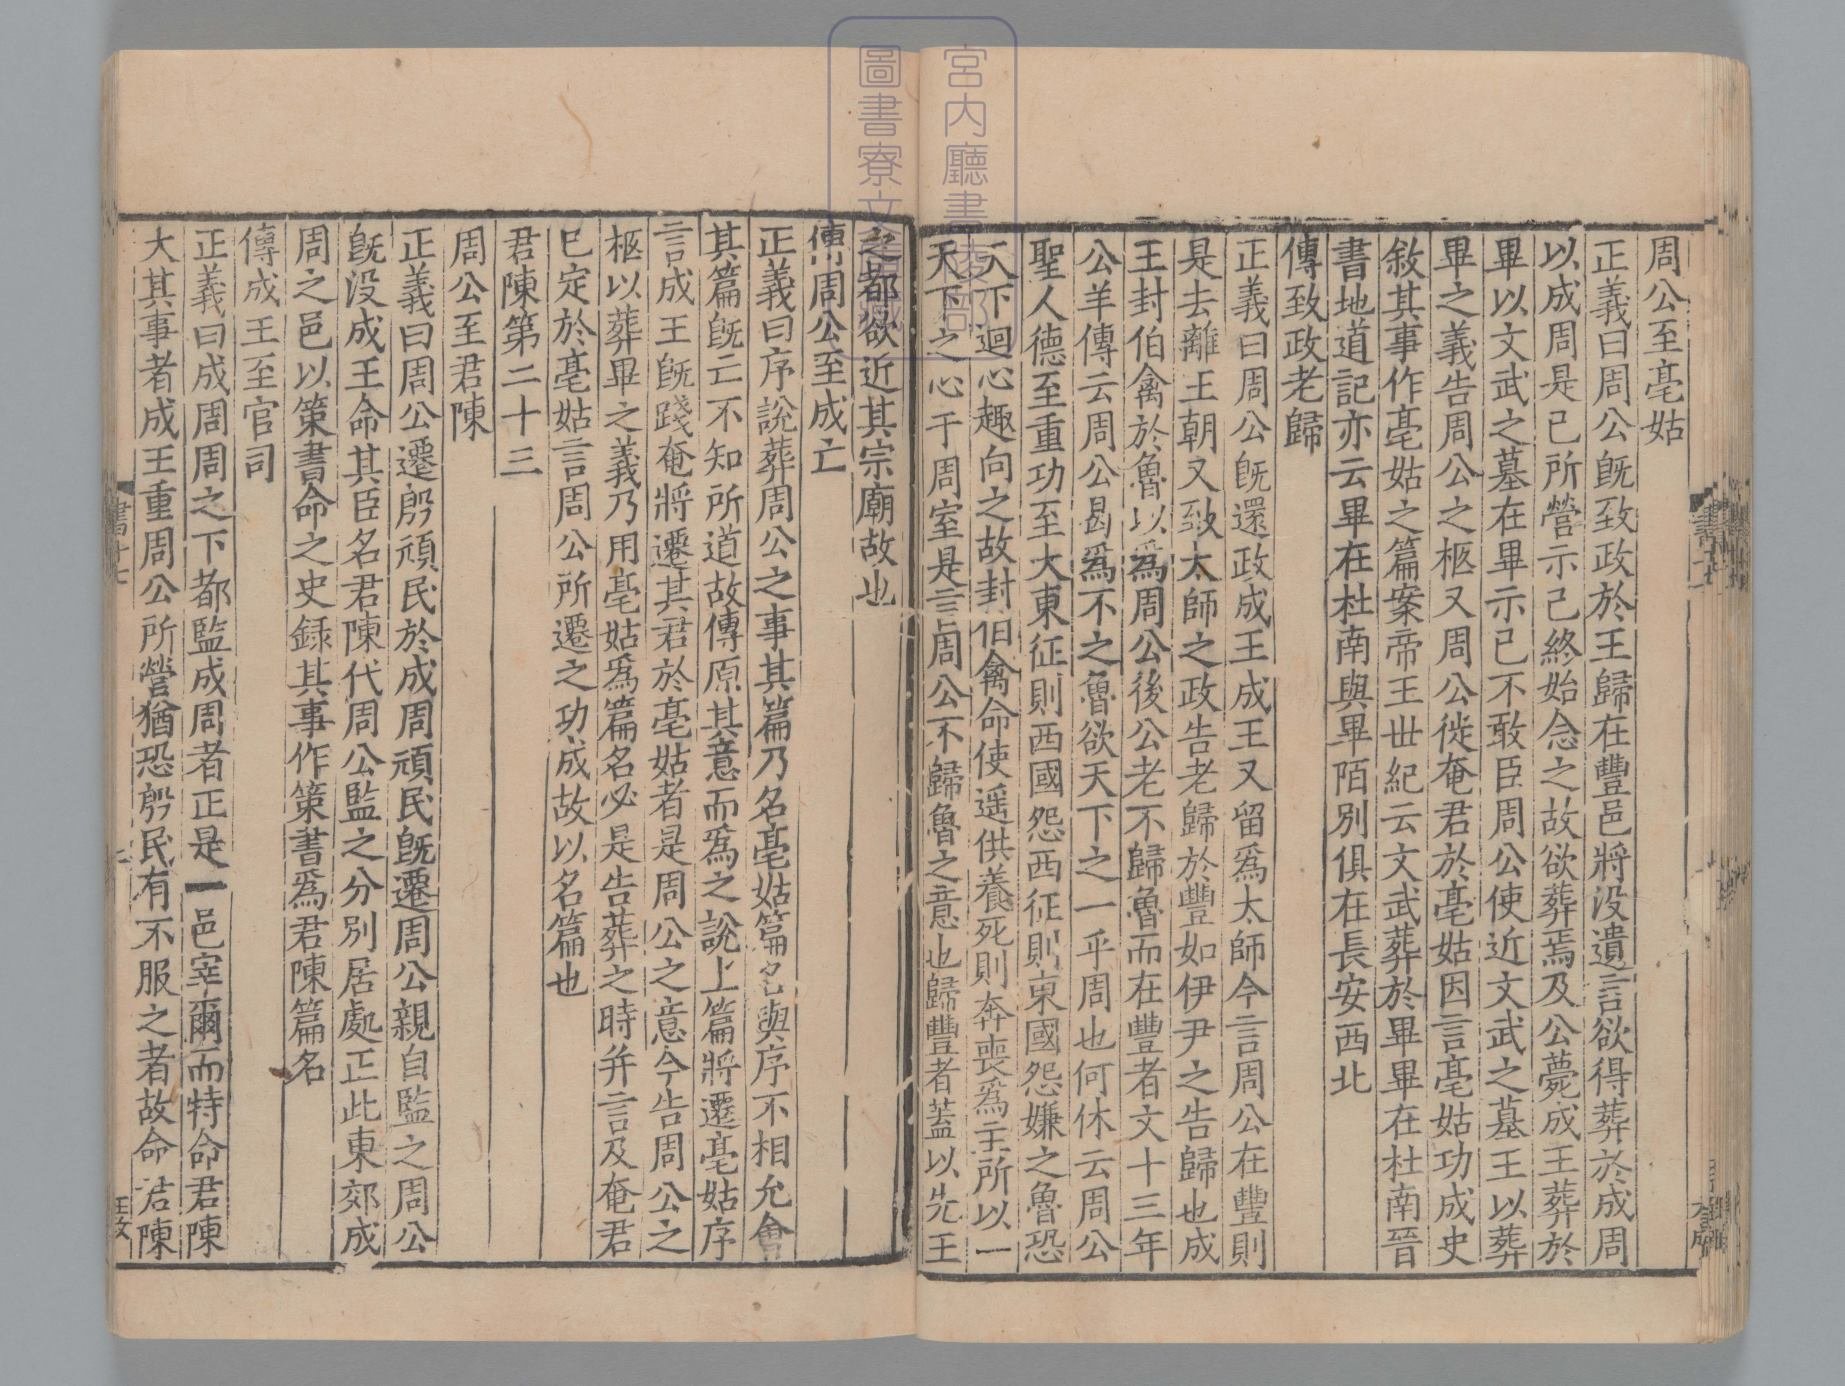 周公至亳姑
正義曰周公旣致政於王歸在豐邑將没遺言欲得葬於成周
以成周是已所營示已終始念之故欲葬焉及公薨成王葬於
畢以文武之墓在畢示已不敢臣周公使近文武之墓王以葬
畢之義告周公之柩又周公徙奄君於亳姑因言亳姑功成史
敘其事作亳姑之篇案帝王世紀云文武葬於畢畢在杜南晉
書地道記亦云畢在杜南與畢陌別俱在長安西北
傳致政老歸
正義曰周公旣還政成王成王又留爲太師今言周公在豐則
是去離王朝又致太師之政告老歸於豐如伊尹之告歸也成
王封伯禽於魯以爲周公後公老不歸魯而在豐者文十三年
公羊傳云周公曷爲不之魯欲天下之一乎周也何休云周公
聖人德至重功至大東征則西國怨西征則東國怨嫌之魯恐
天下迴心趣向之故封伯禽命使遥供養死則奔喪爲主所以一
天下之心于周室是言周公不歸魯之意也歸豐者蓋以先王
之都欲近其宗廟故也
傳周公至成亡
正義曰序說葬周公之事其篇乃名亳姑篇名與序不相允會
其篇旣亡不知所道故傳原其意而爲之說上篇將遷亳姑序
言成王旣踐奄將遷其君於亳姑者是周公之意今告周公之
柩以葬畢之義乃用亳姑爲篇名必是告葬之時并言及奄君
巳定於亳姑言周公所遷之功成故以名篇也
君陳第二十三
周公至君陳
正義曰周公遷殷頑民於成周頑民旣遷周公親自監之周公
旣没成王命其臣名君陳代周公監之分別居處正此東郊成
周之邑以策書命之史録其事作策書爲君陳篇名
傳成王至官司
正義曰成周周之下都監成周者正是一邑宰爾而特命君陳
大其事者成王重周公所營猶恐殷民有不服之者故命君陳
書十七
宮内廳書陵部
圖書寮文庫藏